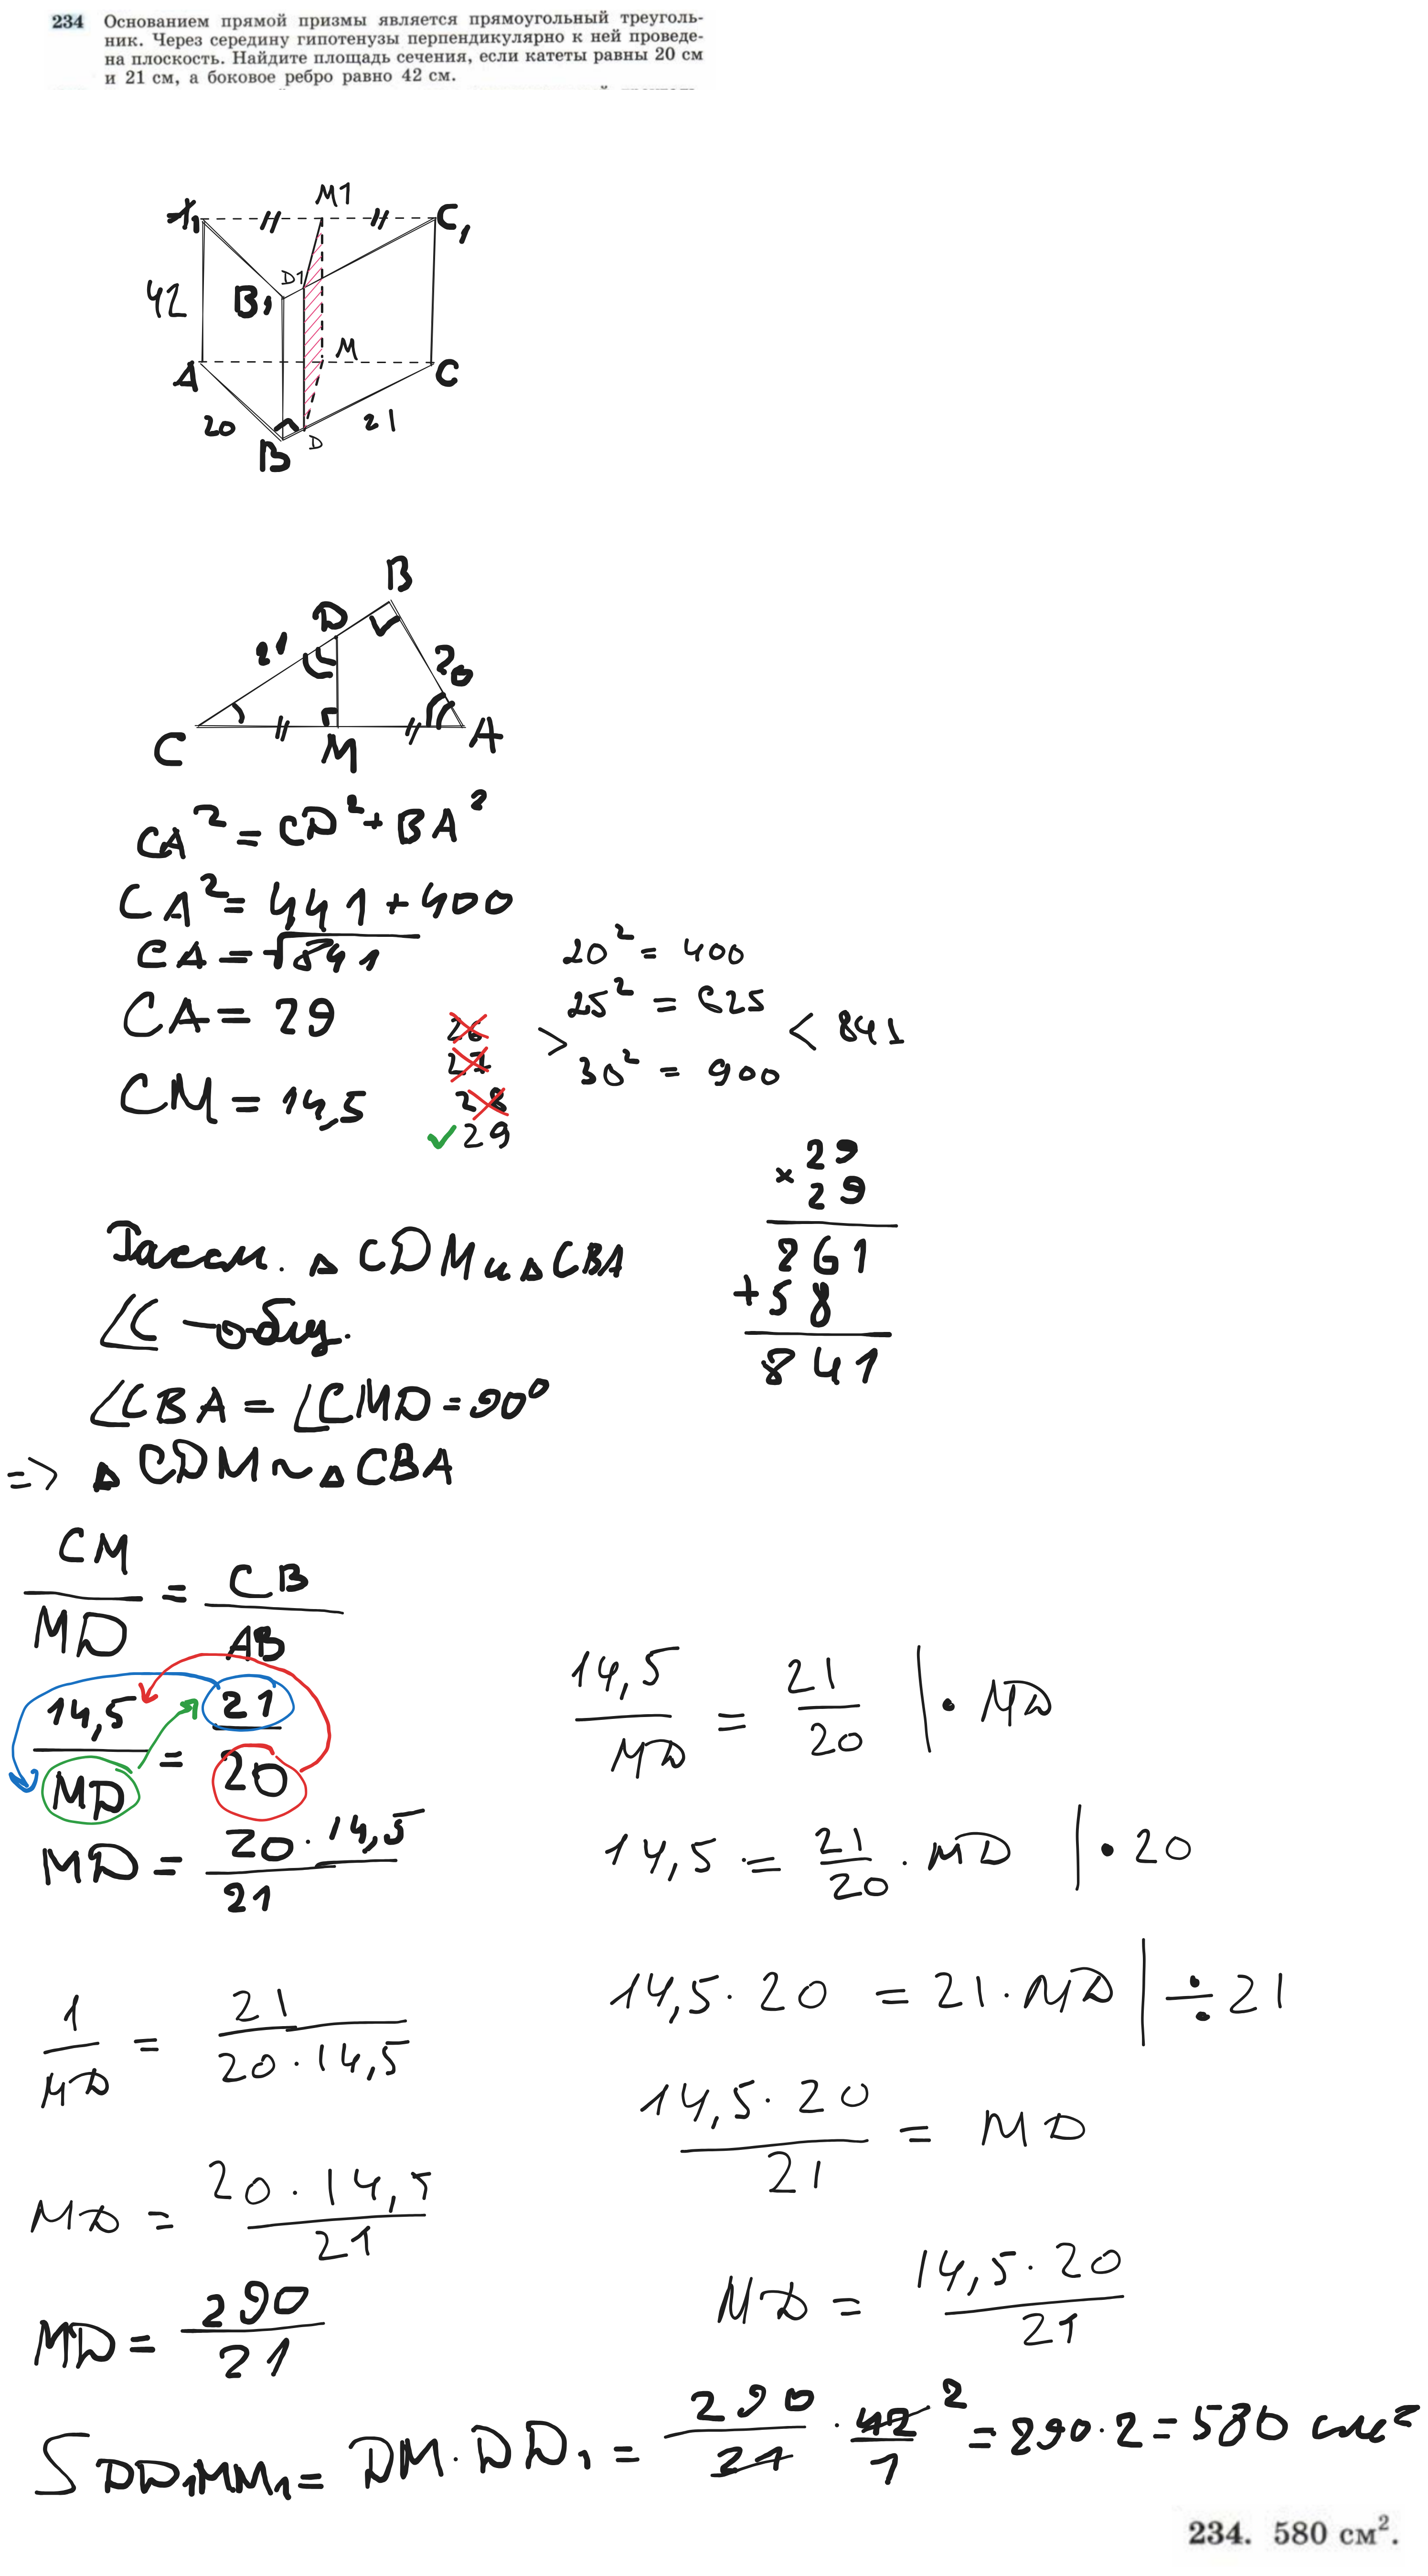 234 Основанием прямой призмы является прямоугольный треуголь-
ник. Через середину гипотенузы перпендикулярно к ней проведе-
на плоскость. Найдите площадь сечения, если катеты равны 20 см
и 21 см, а боковое ребро равно 42 см.
M1
A₁ C₁
D1
42 B₁
M
A C
20 21
B D
B
D
21 20
C M A
CA² = CD² + BA²
CA² = 441 + 400
CA = √841
CA = 29
CM = 14,5
20² = 400
25² = 625
> < 841
30² = 900
26
27
28
✓ 29
× 29
29
261
+ 58
841
Рассм. △ CDM и △ CBA
∠C – общ.
∠CBA = ∠CMD = 90°
=> △ CDM ~ △ CBA
CM/MD = CB/AB
14,5/MD = 21/20
MD = 20 · 14,5/21
1/MD = 21/20 · 14,5
MD = 20 · 14,5/21
MD = 290/21
14,5/MD = 21/20 | · MD
14,5 = 21/20 · MD | · 20
14,5 · 20 = 21 · MD | ÷ 21
14,5 · 20/21 = MD
MD = 14,5 · 20/21
S DD₁MM₁ = DM · DD₁ = 290/21 · 42/1 2 = 290 · 2 = 580 см²
234. 580 см².